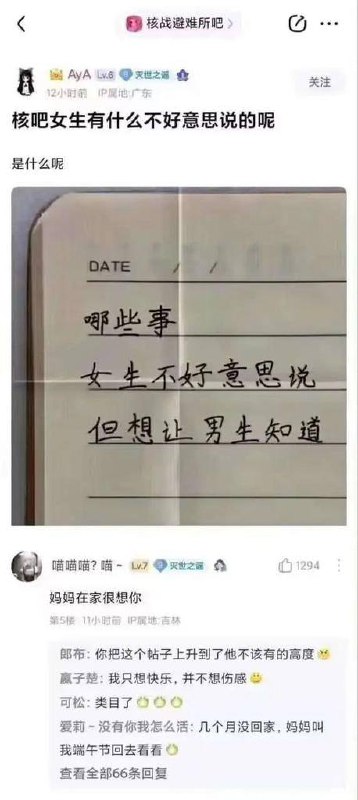 核战避难所吧 >
AyA Lv.6 灭世之谣
12小时前 IP属地:广东
关注
核吧女生有什么不好意思说的呢
是什么呢
DATE / /
哪些事
女生不好意思说
但想让男生知道
喵喵喵?喵~ Lv.7 灭世之谣
1294
妈妈在家很想你
第5楼 11小时前 IP属地:吉林
郎布: 你把这个帖子上升到了他不该有的高度
嬴子楚: 我只想快乐,并不想伤感
可松: 类目了
爱莉-没有你我怎么活: 几个月没回家,妈妈叫
我端午节回去看看
查看全部66条回复